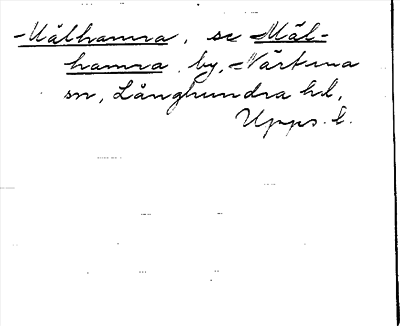 Målhamra, se Mål-
hamra, by, Närtuna
sn, Långhundra hd,
Upps. l.